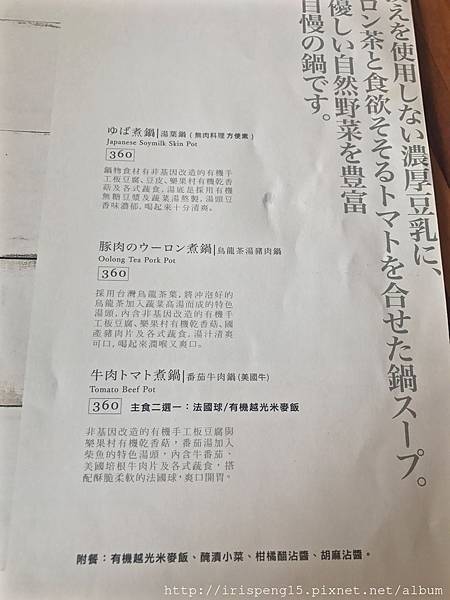 えを使用しない濃厚豆乳に、
ロン茶と食欲そそるトマトを合せた鍋スープ。
優しい自然野菜を豊富
自慢の鍋です。
ゆば煮鍋|湯葉鍋(無肉料理方便素)
Japanese Soymilk Skin Pot
360
鍋物食材有非基因改造的有機手
工板豆腐、豆皮、樂果村有機乾香
菇及各式蔬食,湯底是採用有機
無糖豆漿及蔬菜湯熬製,湯頭豆
香味濃郁,喝起來十分清爽。
豚肉のウーロン煮鍋|烏龍茶湯豬肉鍋
Oolong Tea Pork Pot
360
採用台灣烏龍茶葉,將沖泡好的
烏龍茶加入蔬菜高湯而成的特色
湯頭,內含非基因改造的有機手
工板豆腐、樂果村有機乾香菇、國
產豬肉片及各式蔬食,湯汁清爽
可口,喝起來潤喉又爽口。
牛肉トマト煮鍋|番茄牛肉鍋(美國牛)
Tomato Beef Pot
360 主食二選一:法國球/有機越光米麥飯
非基因改造的有機手工板豆腐與
樂果村有機乾香菇,番茄湯加入
柴魚的特色湯頭,內含牛番茄、
美國培根牛肉片及各式蔬食,搭
配酥脆柔軟的法國球,爽口開胃。
附餐:有機越光米麥飯、醃漬小菜、柑橘醋沾醬、胡麻沾醬。
http://irispeng15.pixnet.net/album